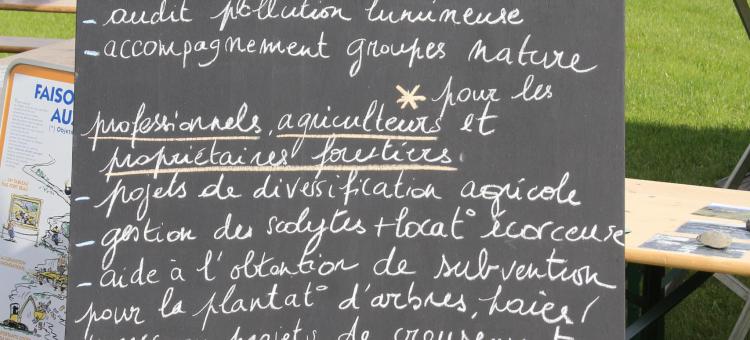 - audit pollution lumineuse
- accompagnement groupes nature
* pour les
professionnels, agriculteurs et
propriétaires forestiers.
- pojets de diversification agricole
- gestion des scolytes + locat° écorceuse
- aide à l'obtention de subvention
pour la plantat° d'arbres, haies /
projets de
FAISO
AU